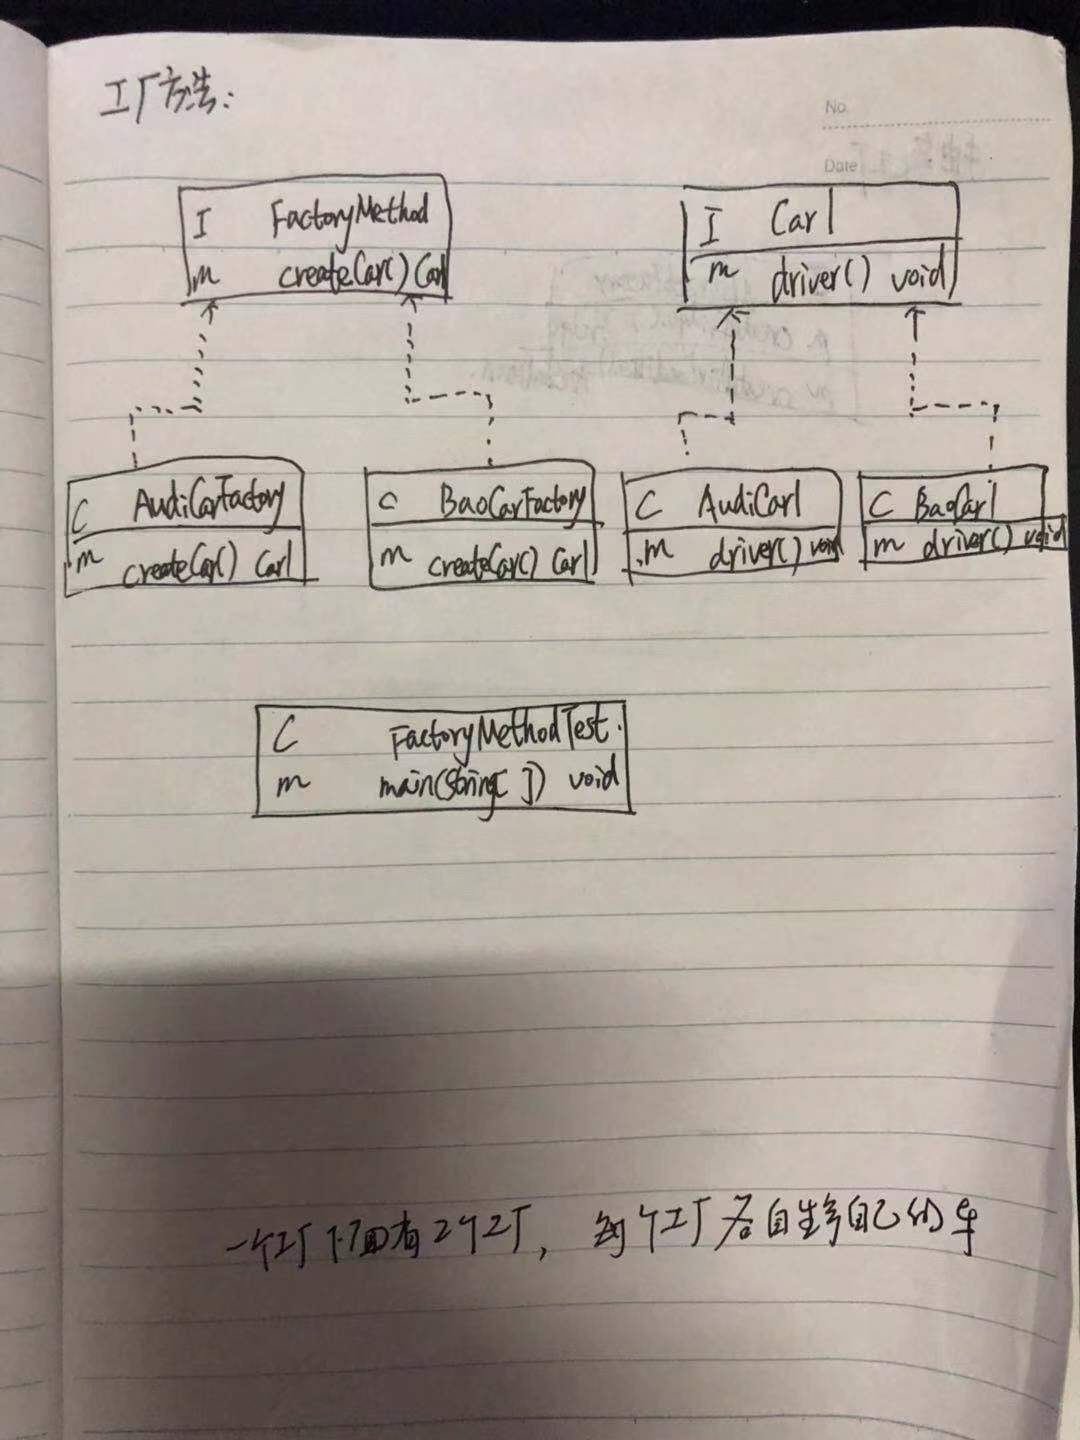 工厂方法:
No.
Date
I FactoryMethod
m createCar() Car1
I Car1
m driver() void
C AudiCarFactory
m createCar() Car1
C BaoCarFactory
m createCar() Car1
C AudiCar1
m driver() void
C BaoCar1
m driver() void
C FactoryMethodTest.
m main(String[ ]) void
一个工厂下面有2个工厂, 每个工厂各自生产自己的车